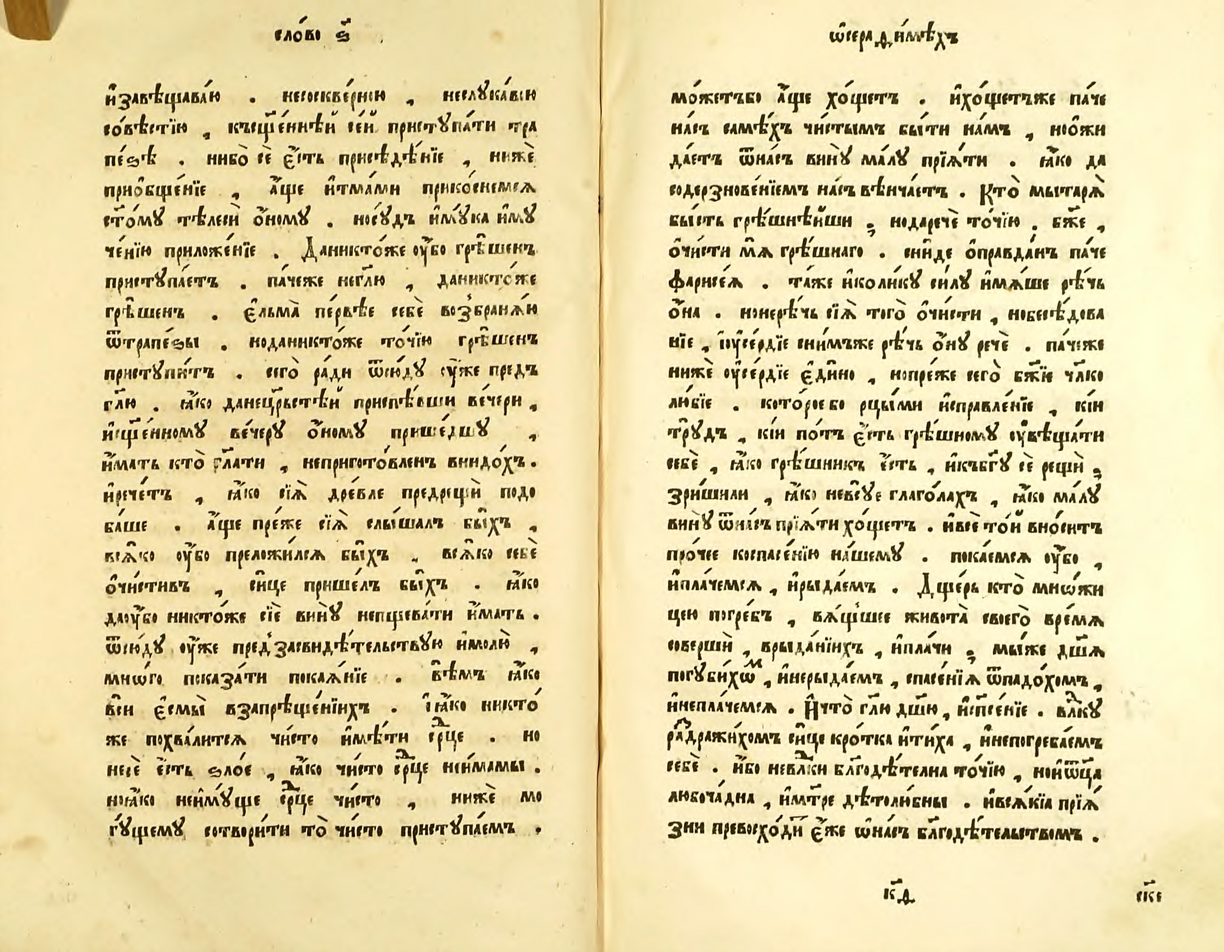 сло́во ѕ҃
и҆завѣщава́ю . несоскве́рною , неслꙋка́вою
со́вѣстїю , къщ҃е́ннѣй се́й пристꙋпа́ти тра
пе́ѕѣ . нибо̀ сѐ є҆́сть присѣдѣ́нїе , нижѐ
прио҆бще́нїе , а҆́ще и҆тма́ми прикосне́мсѧ
ст҃о́мꙋ тѣлесѝ о҆́номꙋ .носꙋ́дъ и҆мꙋ́ка и҆мꙋ
че́нїю приложе́нїе . Даникто́же оу҆̀бо грѣ́шенъ
пристꙋпа́етъ . па́чеже негл҃ю , даникто́же
грѣ́шенъ . є҆льма̀ пе́рвѣе себѐ возбранѧ́ю
ѿтрапе́ѕы . ноданикто́же то́чїю грѣ́шенъ
пристꙋпи́тъ . сего̀ ра́ди ѿсю́дꙋ оу҆́же предъ
гл҃ю . ꙗ҆́ко данецр҃ьстѣ́й приспѣ́вши ве́чери ,
и҆сщ҃е́нномꙋ ве́черꙋ о҆́номꙋ прише́дшꙋ ,
и҆́мать кто̀ гл҃ати , неприготовленъ виидо́хъ .
и҆рече́тъ , ꙗ҆́ко сїѧ̀ дре́вле предрещѝ подо
ба́ше . а҆́ще пре́же сїѧ̀ слы́шалъ бы́хъ ,
всѧ́ко оу҆́бо преложи́лсѧ бы́хъ , всѧ́ко себѐ
ѡ҆чи́стивъ , си́це прише́лъ бы́хъ . ꙗ҆́ко
даоу҆́бо никто́же сїѐ винꙋ̀ непщева́ти и҆́мать .
ѿсю́дꙋ оу҆́же предзасвидѣ́тельствꙋю и҆молю̀ ,
мно́го показа́ти покаѧ́нїе . вѣ́мъ ꙗ҆́ко
всѝ є҆смы̀ взапреще́нїихъ . і҆ꙗ҆́ко никто́
же похва́литсѧ чи́сто и҆мѣ́ти ср҃це . но
несѐ є҆́сть ѕло́е , ꙗ҆́ко чи́сто ср҃це неи́мамы .
ноꙗ҆́ко неимꙋ́ще ср҃це чи́сто , нижѐ мо
гꙋ́щемꙋ сотвори́ти то̀ чи́сто пристꙋпа́емъ .
ѡ҆серафи́мѣхъ
мо́жетъбо а҆́ще хо́щетъ . и҆хо́щетъже па́че
на́съ самѣ́хъ чи́стымъ бы́ти на́мъ , ноожи
да́етъ ѿна́съ винꙋ̀ ма́лꙋ прїѧ́ти . ꙗ҆́ко да
содерзнове́нїемъ на́съ вѣнча́етъ . Кто̀ мытарѧ̀
бы́сть грѣшнѣ́йши ; нодаречѐ то́чїю , бж҃е ,
ѡ҆чи́сти мѧ̀ грѣ́шнаго . сни́де ѡ҆правда́нъ па́че
фарисе́ѧ . та́же и҆коли́кꙋ си́лꙋ и҆мѧ́ше рѣ́чь
о҆́на . нонерѣ́чь сїѧ̀ того̀ ѡ҆чи́сти , нобесѣ́дова
нїе , і҆оу҆се́рдїе сни́мъже рѣ́чь о҆́нꙋ речѐ . па́чеже
нижѐ оу҆се́рдїе є҆ди́но , нопре́же сего̀ бж҃їе чл҃ко
лю́бїе . кото́роебо рцы́ми и҆справле́нїе , кі́и
трꙋ́дъ , кі́и по́тъ є҆́сть грѣ́шномꙋ оу҆вѣща́ти
себѐ , ꙗ҆́ко грѣ́шникъ є҆́сть , и҆къбг҃ꙋ сѐ рещѝ ;
зри́шили , ꙗ҆́ко невсꙋ́е глаго́лахъ , ꙗ҆́ко ма́лꙋ
винꙋ̀ ѿна́съ прїѧ́ти хо́щетъ . и҆всѐ то́й вно́ситъ
про́чее коспасе́нїю на́шемꙋ . пока́емсѧ оу҆́бо ,
и҆пла́чемсѧ , и҆рыда́емъ . Дще́рь кто̀ мно́жи
цею погре́бъ , вѧ́щшее живота̀ своего̀ вре́мѧ
совершѝ , врыда́нїихъ , и҆пла́чи ; мы́же дш҃ѧ
погꙋби́хѡм , и҆нерыда́емъ , спасе́нїѧ ѿпадо́хомъ ,
и҆непла́чемсѧ . И҆что̀ гл҃ю дш҃ю , и҆сп҃се́нїе . влⷣкꙋ
раздражи́хомъ си́це кро́тка и҆ти́ха , и҆непогреба́емъ
себѐ . и҆́бо невлⷣки бл҃годѣ́телна то́чїю , нои҆ѿц҃а
любоча́дна , и҆мт҃ре дѣтолю́бны . и҆всѧ́кїѧ прїѧ́
зни превосхо́дѝ є҆́же ѡ҆на́съ бл҃годѣ́тельствомъ .
к҃д
є҆́же